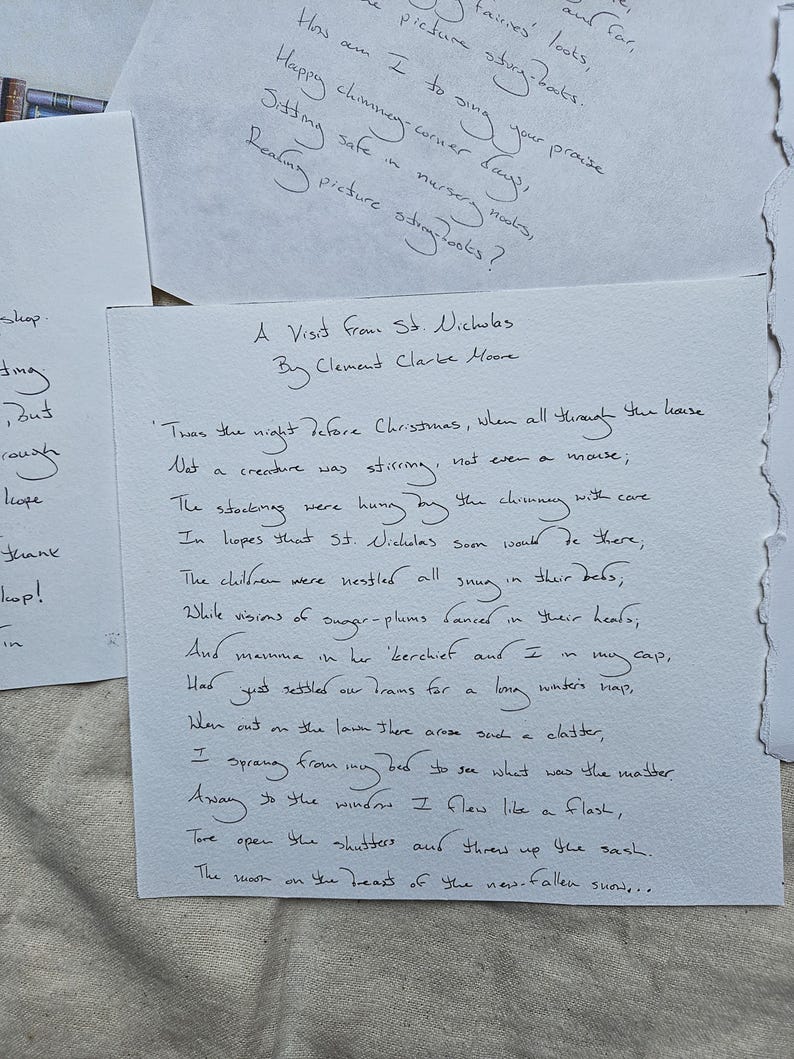 fairies' looks,
and far,
picture story-books.
How am I to sing your praise
Happy chimney-corner days,
Sitting safe in nursery nooks,
Reading picture story-books?
shop.
ting
, but
rough
hope
thank
in
A Visit from St. Nicholas
By Clement Clarke Moore
'Twas the night before Christmas, when all through the house
Not a creature was stirring, not even a mouse;
The stockings were hung by the chimney with care
In hopes that St. Nicholas soon would be there;
The children were nestled all snug in their beds;
While visions of sugar-plums danced in their heads;
And mamma in her 'kerchief and I in my cap,
Had just settled our brains for a long winter's nap,
When out on the lawn there arose such a clatter,
I sprang from my bed to see what was the matter.
Away to the window I flew like a flash,
Tore open the shutters and threw up the sash.
The moon on the breast of the new-fallen snow...